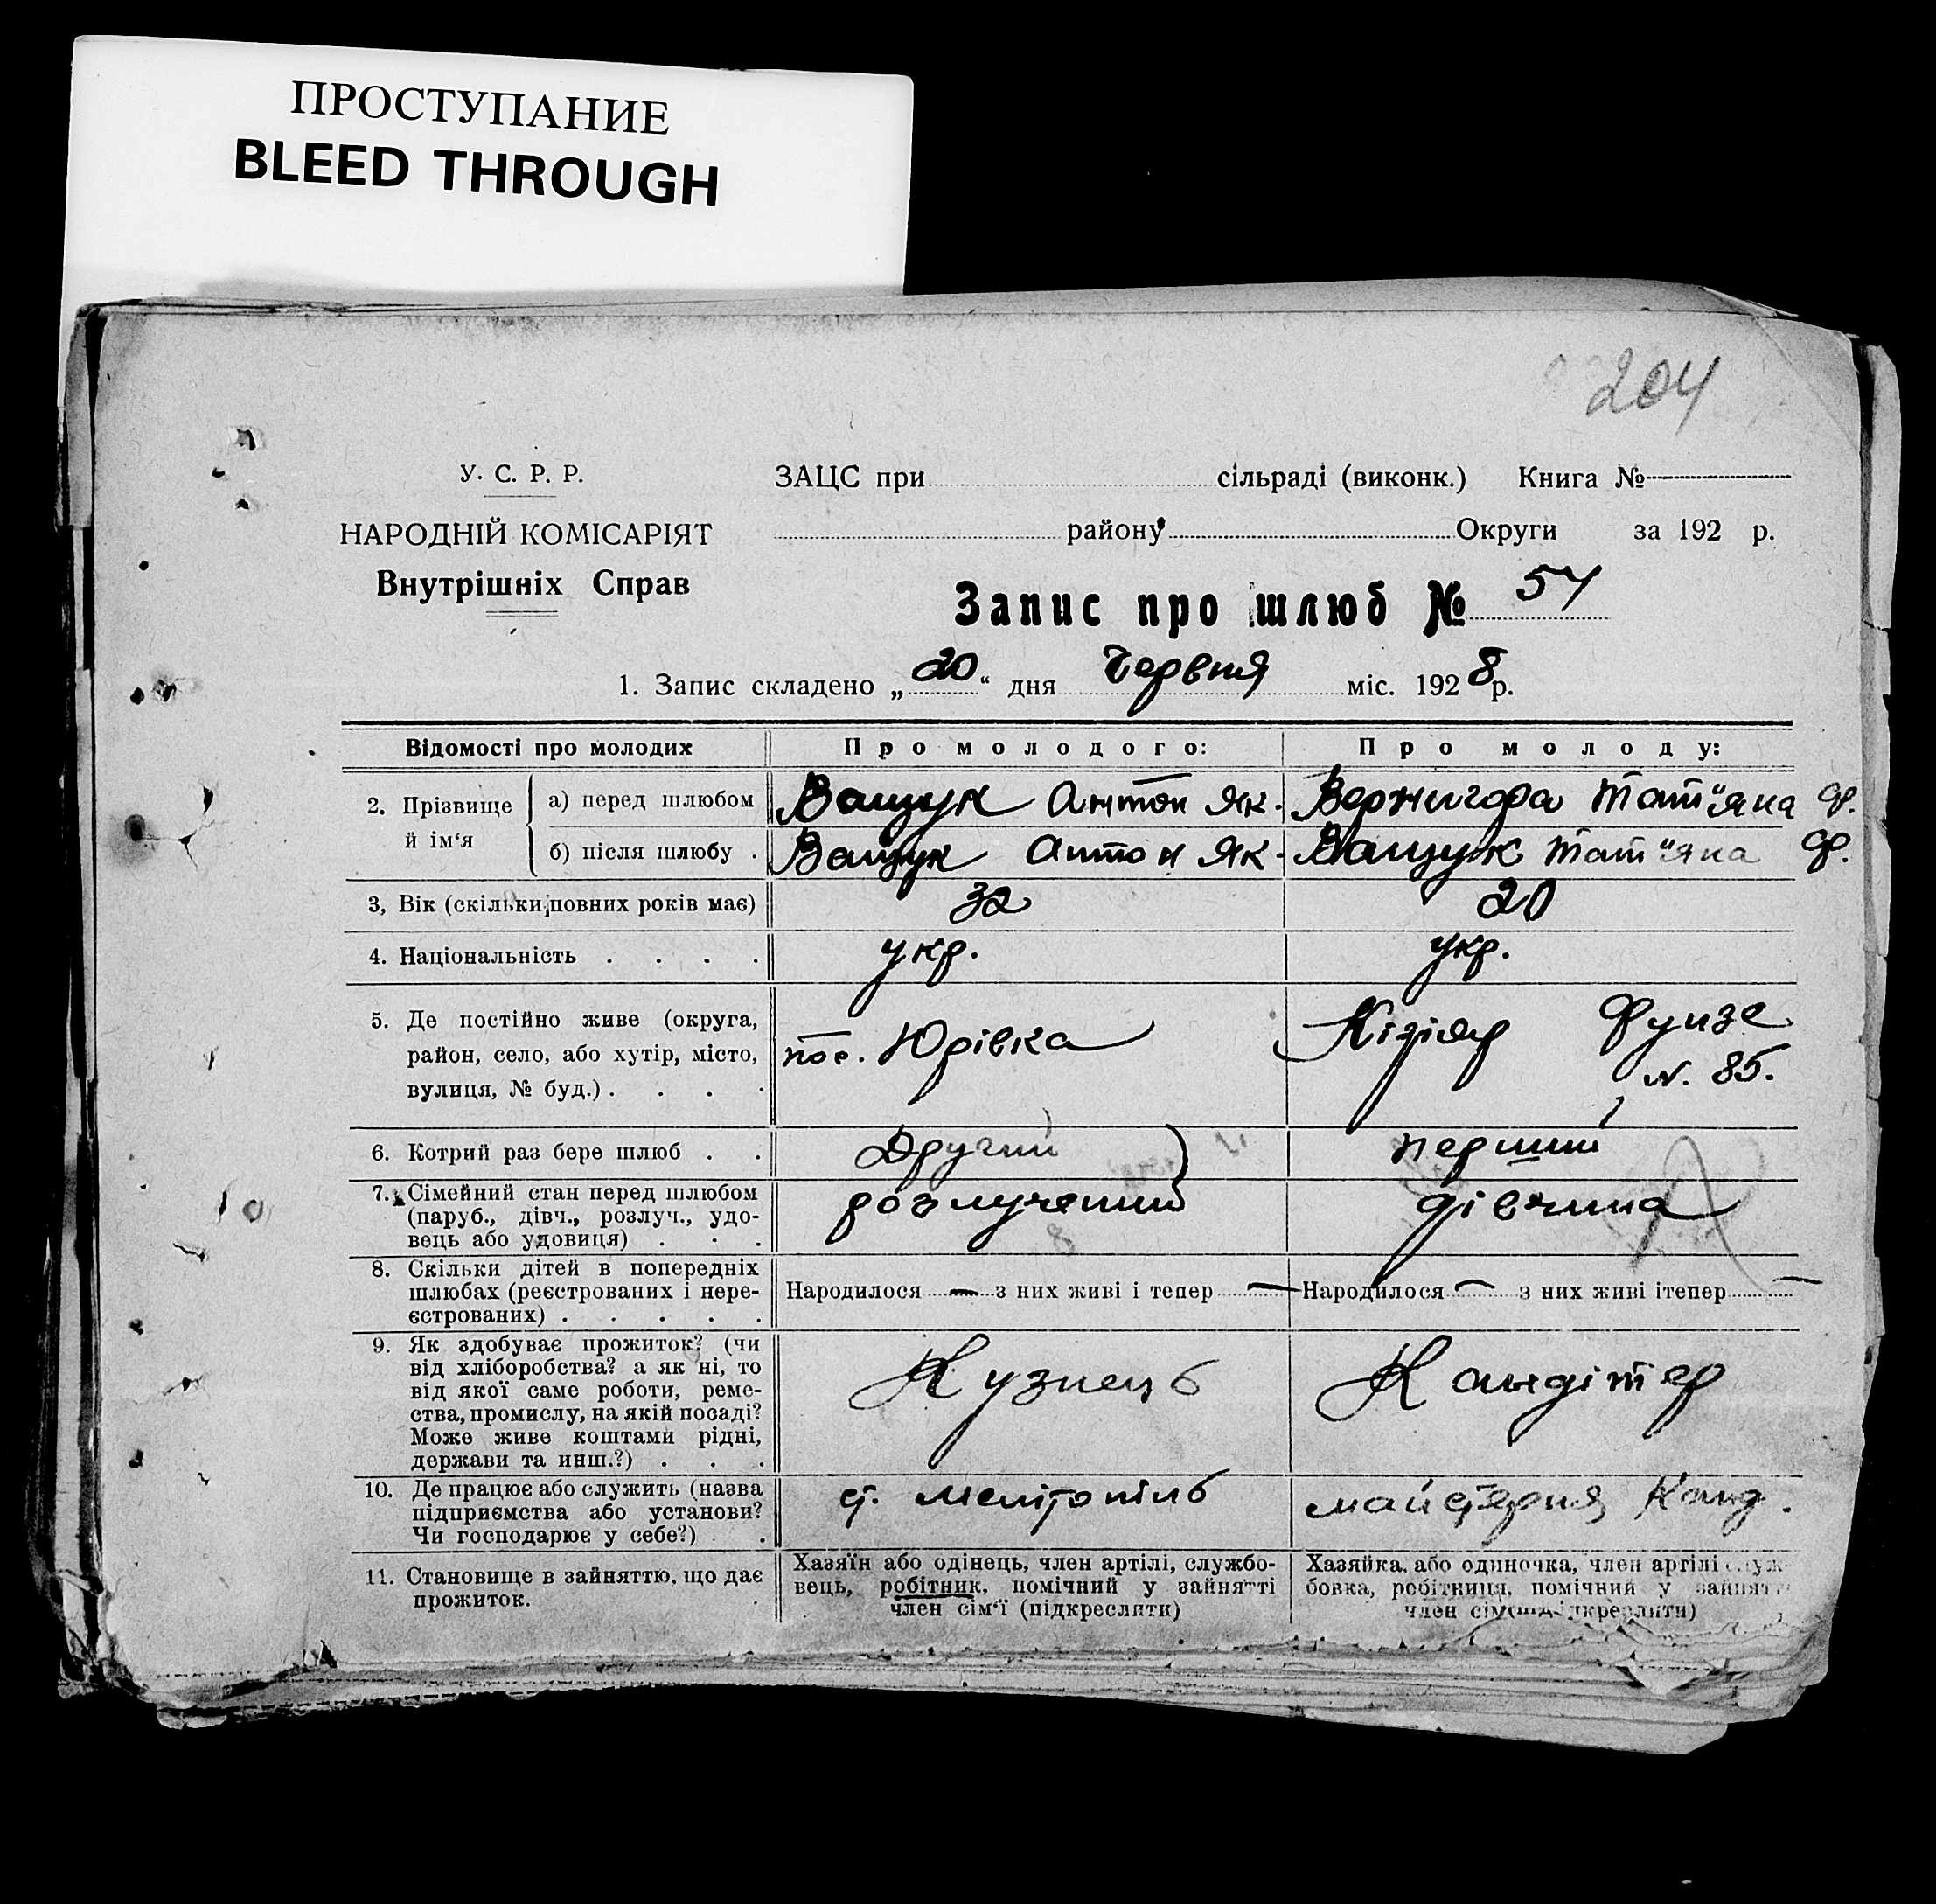 ПРОСТУПАНИЕ
BLEED THROUGH
204
У. С. Р. Р.
ЗАЦС при сільраді (виконк.) Книга №
НАРОДНІЙ КОМІСАРІЯТ
району Округи за 192 р.
Внутрішніх Справ
Запис про шлюб № 54
1. Запис складено „20“ дня Червня міс. 1928 р.
Відомості про молодих Про молодого: Про молоду:
2. Прізвище й ім‘я
а) перед шлюбом Ващук Антон Як. Вернигора Тат"яна Ф.
б) після шлюбу . Ващук Антон Як. Ващук Тат"яна Ф.
3, Вік (скільки повних років має) 32 20
4. Національність . . . . укр. укр.
5. Де постійно живе (округа,
район, село, або хутір, місто,
вулиця, № буд.) . . . .
пос. Юрівка
Кізіяр Фунзе
N. 85.
6. Котрий раз бере шлюб . . Другий перший
7. Сімейний стан перед шлюбом
(паруб., дівч., розлуч., удо-
вець або удовиця) . . .
розлучений дівчина
8. Скільки дітей в попередніх
шлюбах (реєстрованих і нере-
єстрованих) . . . . .
Народилося — з них живі і тепер —
Народилося — з них живі ітепер —
9. Як здобуває прожиток? (чи
від хліборобства? а як ні, то
від якої саме роботи, реме-
ства, промислу, на якій посаді?
Може живе коштами рідні,
держави та инш.?) . . .
Кузнець Кандітер
10. Де працює або служить (назва
підприємства або установи?
Чи господарює у себе?) . .
ст. Мелітопіль майстерня Канд.
11. Становище в зайняттю, що дає
прожиток.
Хазяїн або одінець, член артілі, службо-
вець, робітник, помічний у зайнятті
член сім‘ї (підкреслити)
Хазяйка, або одиночка, член артілі служ-
бовка, робітниця, помічний у зайнятті
член сім